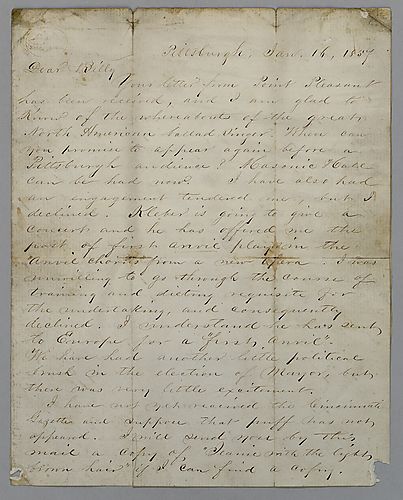 Pittsburgh, Jan. 16, 1857
Dear Billy
Your letter from Point Pleasant
has been received, and I am glad to
know of the whereabouts of the great
North American ballad singer. When can
you promise to appear again before a
Pittsburgh audience? Masonic Hall
can be had now. I have also had
an engagement tendered me, but I
declined. Kleber is going to give a
concert and he has offered me the
part of first anvil player in the
Anvil Chorus from a new Opera. I was
unwilling to go through the course of
training and dieting requisite for
the undertaking, and consequently
declined. I understand he has sent
to Europe for a "first anvil".
We have had another little political
brush in the election of Mayor, but
there was very little excitement.
I have not yet received the Cincinnati
Gazette and suppose that puff has not
appeared. I will send you by this
mail a copy of "Jeanie with the light
brown hair" if I can find a copy.